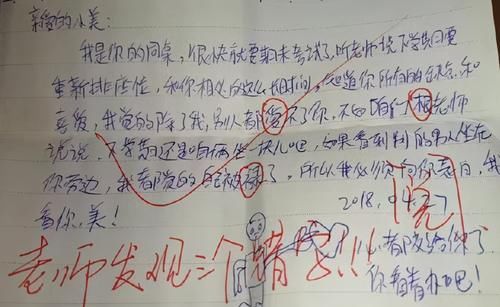 亲爱的小美:
我是你的同桌,很快就要期末考试了,听老师说下学期要
重新排座位,和你相处的这么长时间,知道你所有的
喜爱,我觉的除了我,别人都爱不了你,不如咱们个根老师
说说,下学期还是咱俩坐一块儿吧,如果看到别的男人坐在
你旁边,我都觉的自己被禄了,所以我必须向你表白,我
喜你,美!
2018.04.27
老师发现三个错字!!!
都改给你了
你看着办吧!